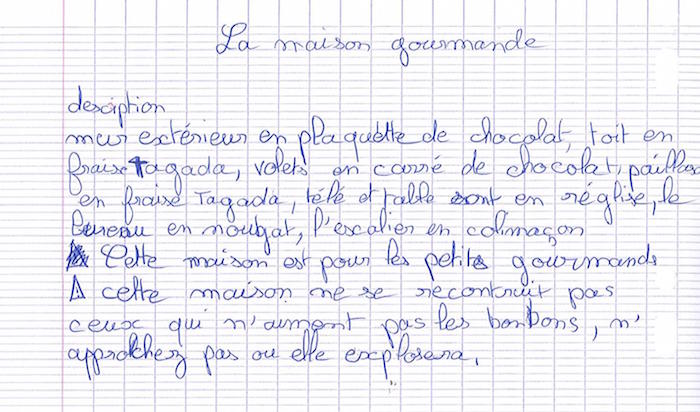 La maison gourmande
desciption
mur extérieur en plaquette de chocolat, toit en
fraise Tagada, volets en carré de chocolat, paillas
en fraise Tagada, télé et table sont en réglise, le
bureau en nougat, l'escalier en colimaçon
Cette maison est pour les petits gourmands
⚠ cette maison ne se recontruit pas
ceux qui n'aiment pas les bonbons, n'
approchez pas ou elle explosera.